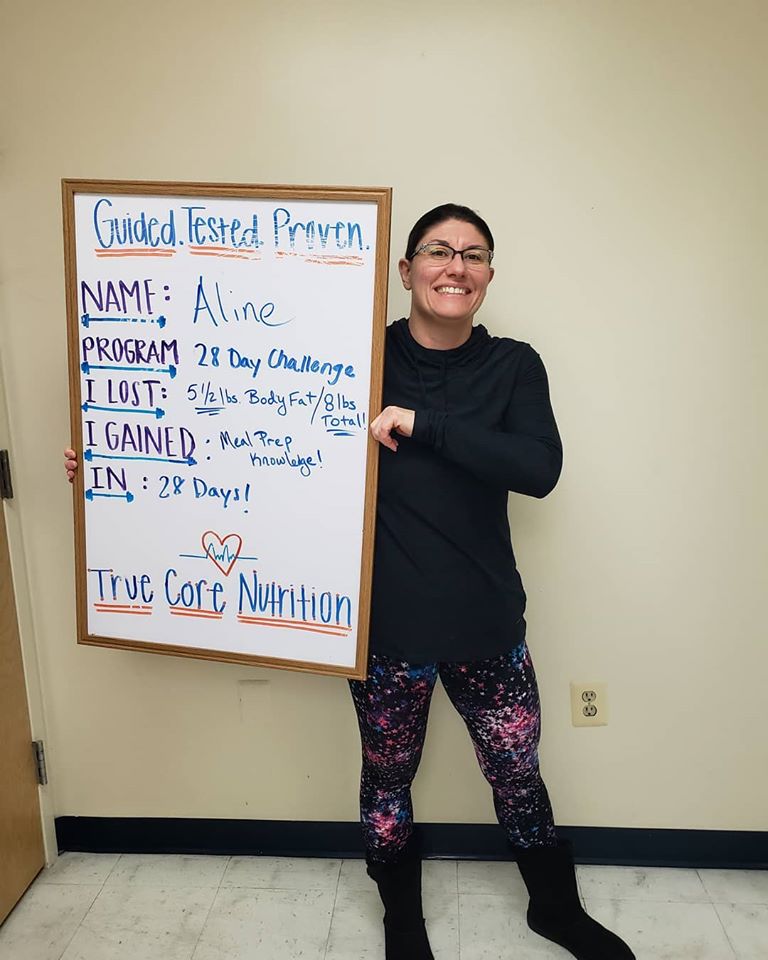 Guided. Tested. Proven.
NAME: Aline
PROGRAM 28 Day Challenge
I LOST: 5 1/2 lbs. Body Fat / 8 lbs
Total!
I GAINED: Meal Prep
Knowledge!
IN: 28 Days!
True Core Nutrition